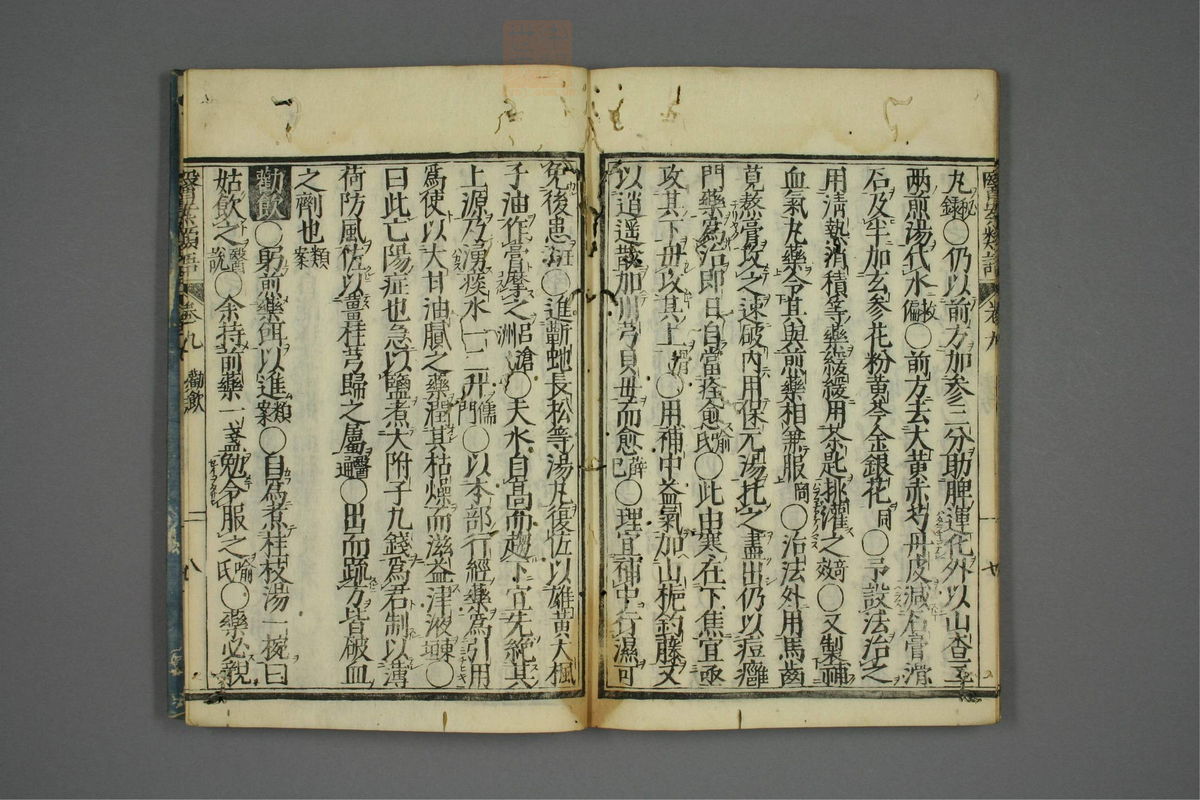 丸秘錄○仍以前方加參三分助脾運化外以山查至
両煎湯代水救偏○前方去大黃赤芍丹皮減石膏滑
石及半加玄參花粉黃芩金銀花同○予設法治之
用淸熱消積等藥緩緩用茶匙挑灌之奇效○又製補
血氣丸藥令其與煎藥相兼服岡○治法外用馬齒
莧熬膏攻之速破內用保元湯托之盡出仍以痘癰
門藥爲治卽日自當痊愈喻氏○此由寒在下焦宜亟
攻其下毋攻其上滑○用補中益氣加山梔釣藤又
以逍遥散加川芎貝毋而愈薛己○理宜補中行濕可
免後患汪○進蘄虵長松等湯丸復佐以雄黃大楓
子油作膏摩之呂滄洲○夫水自高而趨下宜先絶其
上源乃湧痰水一二升儒門○以本部行經藥爲引用
爲使以大甘油膩之藥潤其枯燥而滋益津液東垣○
曰此亡陽症也急以鹽煮大附子九錢爲君制以薄
荷防風佐以薑桂芎歸之屬醫通○出而䟽方皆破血
之劑也類案
勸飮○躬前藥餌以進類案○自爲煮桂枝湯一椀曰
姑飮之醫說○余持前藥一盞勉令服之喻氏○藥必親
卷九
勸飮
八